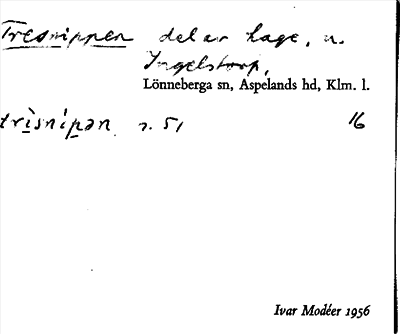 Tresnippen del av hage, u.
Ingelstorp,
Lönneberga sn, Aspelands hd, Klm. l.
trìsnípən s. 51 16
Ivar Modéer 1956